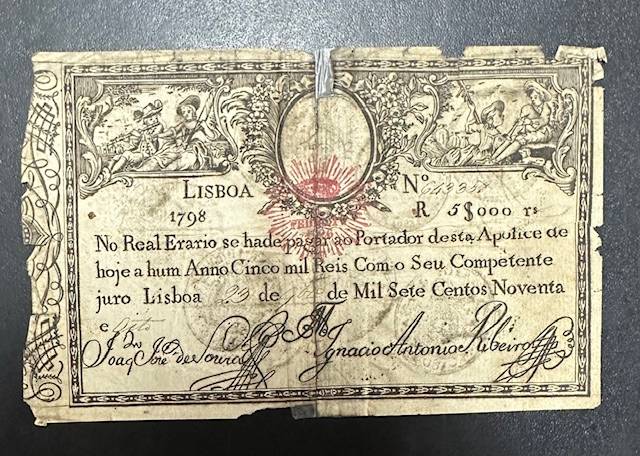 LISBOA Nº
1798 R 5$000 rs
No Real Erario se hade pagar ao Portador desta Apolice de
hoje a hum Anno Cinco mil Reis Com o Seu Competente
juro Lisboa 29 de de Mil Sete Centos Noventa
e Oito
Joaq Jose de Souza Ignacio Antonio Ribeiro